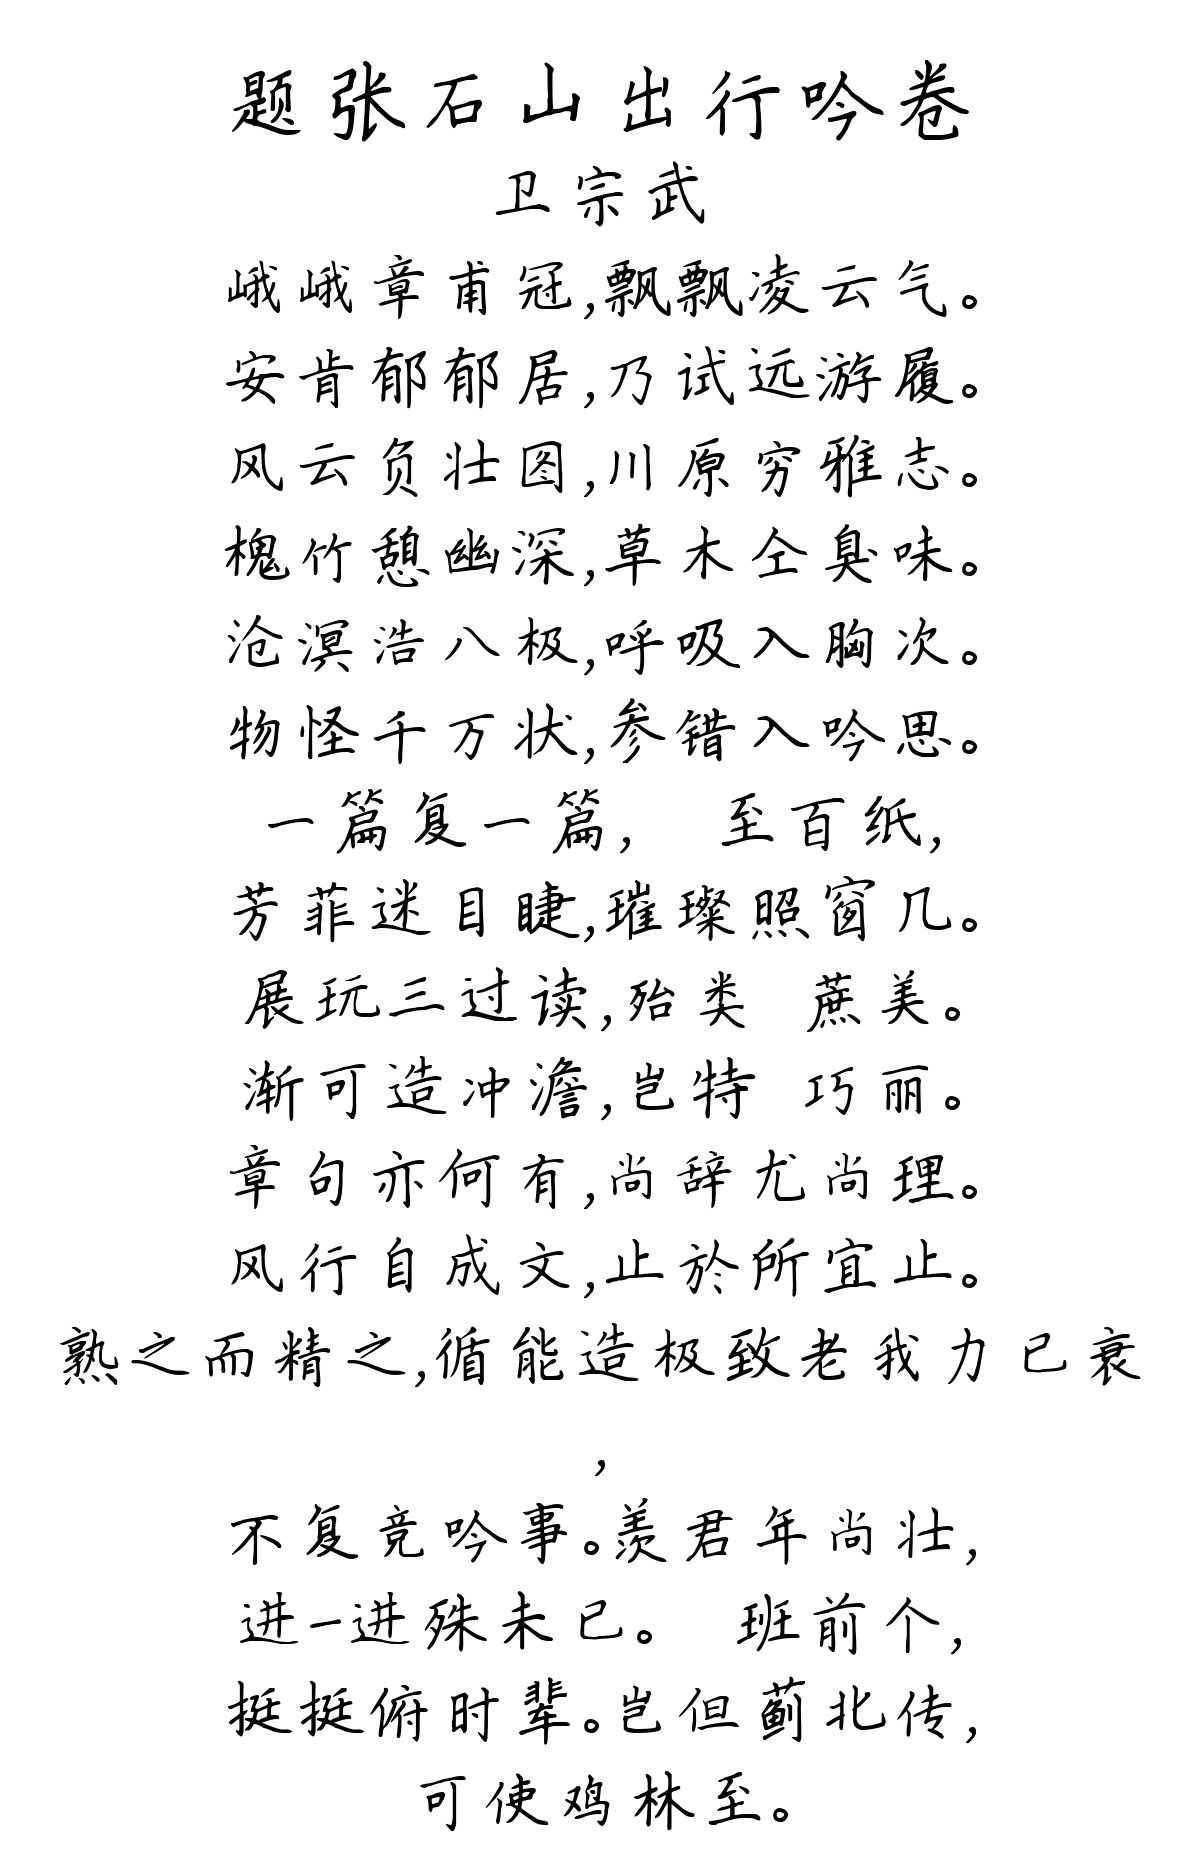 题张石山出行吟卷
卫宗武
峨峨章甫冠,飘飘凌云气。
安肯郁郁居,乃试远游履。
风云负壮图,川原穷雅志。
槐竹憩幽深,草木仝臭味。
沧溟浩八极,呼吸入胸次。
物怪千万状,参错入吟思。
一篇复一篇, 至百纸,
芳菲迷目睫,璀璨照窗几。
展玩三过读,殆类 蔗美。
渐可造冲澹,岂特 巧丽。
章句亦何有,尚辞尤尚理。
风行自成文,止於所宜止。
熟之而精之,循能造极致老我力已衰
,
不复竞吟事。羡君年尚壮,
进一进殊未已。 班前个,
挺挺俯时辈。岂但蓟北传,
可使鸡林至。